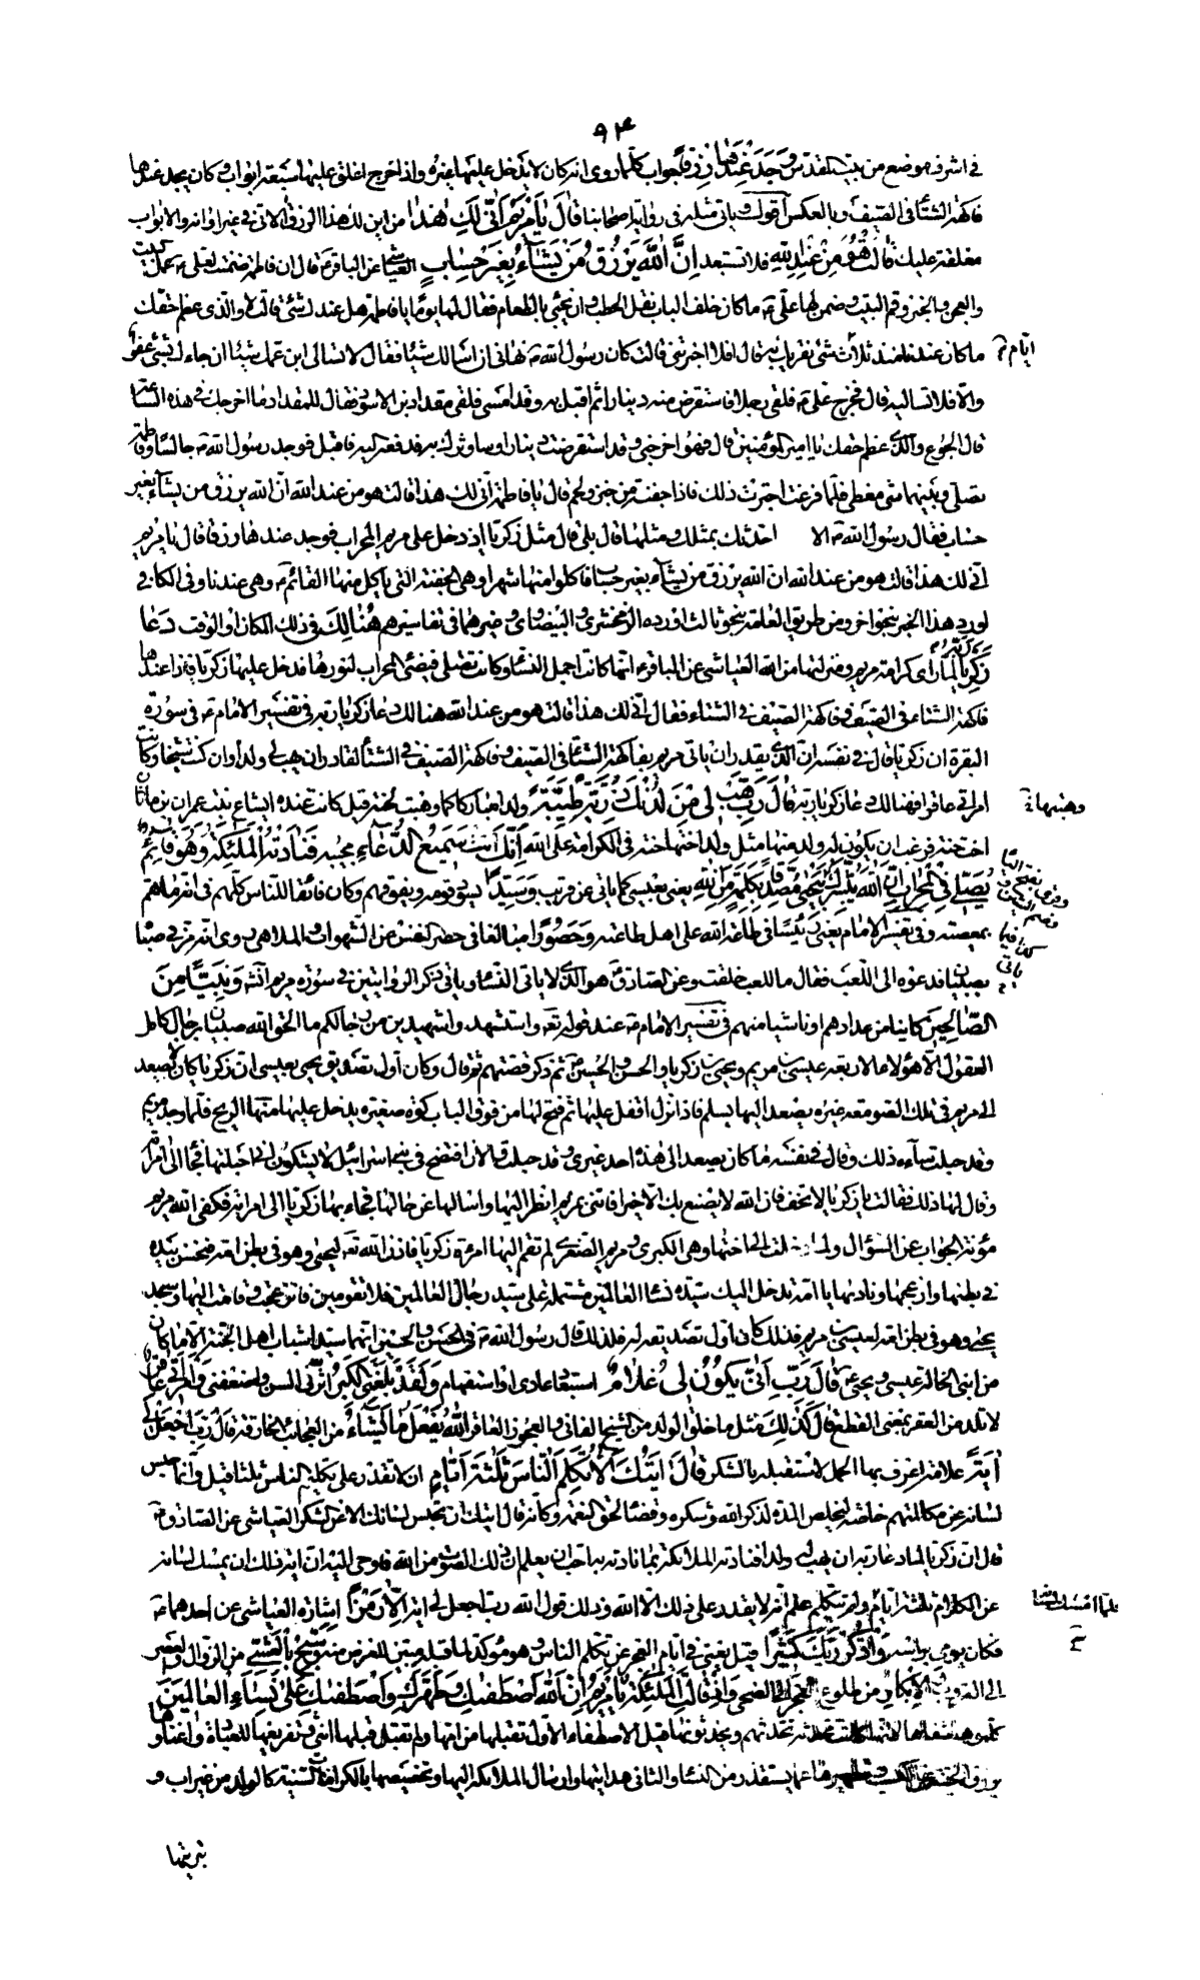 ٩٤
في اشرف موضع من بيت المقدس وَجَدَ عِنْدَهَا رِزْقًا جواب كلما روى انه كان لا يدخل عليها غيره واذا خرج اغلق عليها سبعة ابواب وكان يجد عندها
فاكهة الشتاء في الصيف وبالعكس اقول وياتي مثله في رواية اصحابنا قَالَ يَا مَرْيَمُ أَنَّىٰ لَكِ هٰذَا من اين لك هذا الرزق الآتي في غير اوانه والابواب
مغلقة عليك قَالَتْ هُوَ مِنْ عِنْدِ اللّٰهِ فلا تستبعد إِنَّ اللّٰهَ يَرْزُقُ مَنْ يَشَاءُ بِغَيْرِ حِسَابٍ العياشي عن الباقر ع قال ان فاطمة ضمنت لعلي ع عمل البيت
والعجين والخبز وقم البيت وضمن لها علي ع ما كان خلف الباب نقل الحطب وان يجئ بالطعام فقال لها يوما يا فاطمة هل عندك شئ قالت لا والذي عظم حقك
ما كان عندنا منذ ثلاث شئ نقريك به قال افلا اخبرتني قالت كان رسول الله ص نهاني ان اسالك شيئا فقال لا تسالي ابن عمك شيئا ان جاءك بشئ عفو
ايام م
والا فلا تساليه قال فخرج علي ع فلقي رجلا فاستقرض منه دينارا ثم اقبل به وقد امسى فلقي مقداد بن الاسود فقال للمقداد ما اخرجك في هذه الساعة
قال الجوع والذي عظم حقك يا امير المؤمنين قال فهو اخرجني وقد استقرضت دينارا وساوثرك به فدفعه اليه فاقبل فوجد رسول الله ص جالسا وفاطمة
تصلي وبينهما شئ مغطى فلما فرغت اجترت ذلك فاذا جفنة من خبز ولحم قال يا فاطمة انى لك هذا قالت هو من عند الله ان الله يرزق من يشاء بغير
حساب فقال رسول الله ص الا احدثك بمثلك ومثلها قال بلى قال مثل زكريا اذ دخل على مريم المحراب فوجد عندها رزقا قال يا مريم
انى لك هذا قالت هو من عند الله ان الله يرزق من يشاء بغير حساب فاكلوا منها شهرا وهي الجفنة التي ياكل منها القائم ع وهي عندنا وفي الكافي
اورد هذا الخبر بنحو اخر ومن طريق العامة بنحو ثالث اورده الزمخشري والبيضاوي وغيرهما في تفاسيرهم هُنَالِكَ في ذلك المكان او الوقت دَعَا
زَكَرِيَّا رَبَّهُ لما راى كرامة مريم ومنزلتها من الله العياشي عن الباقر ع انها كانت اجمل النساء وكانت تصلي فيضئ المحراب لنورها فدخل عليها زكريا فاذا عندها
فاكهة الشتاء في الصيف وفاكهة الصيف في الشتاء فقال انى لك هذا قالت هو من عند الله هنالك دعا زكريا ربه وفي تفسير الامام ع في سورة
البقرة ان زكريا قال في نفسه ان الذي يقدر ان ياتي مريم بفاكهة الشتاء في الصيف وفاكهة الصيف في الشتاء لقادر ان يهب لي ولدا وان كنت شيخا وكانت
امراتي عاقرا فهنالك دعا زكريا ربه قَالَ رَبِّ هَبْ لِي مِنْ لَدُنْكَ ذُرِّيَّةً طَيِّبَةً ولدا مباركا كما وهبت لحنة قيل كانت عنده ايشاع بنت عمران بن ماثان
وهبتها خ
اخت حنة فرغب ان يكون له ولد منها مثل ولد اختها حنة في الكرامة على الله إِنَّكَ سَمِيعُ الدُّعَاءِ مجيبه فَنَادَتْهُ الْمَلٰئِكَةُ وَهُوَ قَائِمٌ
يُصَلِّي فِي الْمِحْرَابِ أَنَّ اللّٰهَ يُبَشِّرُكَ بِيَحْيَىٰ مُصَدِّقًا بِكَلِمَةٍ مِنَ اللّٰهِ يعني بعيسى كما ياتي عن قريب وَسَيِّدًا يسود قومه ويفوقهم وكان فائقا للناس كلهم في انه ما هم
بمعصية وفي تفسير الامام يعني رئيسا في طاعة الله على اهل طاعته وَحَصُورًا مبالغا في حصر النفس عن الشهوات والملاهي روى انه مر في صباه
بصبيان فدعوه الى اللعب فقال ما للعب خلقت وعن الصادق هو الذي لا ياتي النساء وياتي ذكر الروايتين في سورة مريم انش وَنَبِيًّا مِنَ
الصَّالِحِينَ كائنا من عدادهم او ناشيا منهم في تفسير الامام ع عند قوله تع واستشهدوا شهيدين من رجالكم ما الحق الله صبيانا برجال كاملي
العقول الا هؤلاء الاربعة عيسى بن مريم ويحيى بن زكريا والحسن والحسين ثم ذكر قصتهم ثم قال وكان اول تصديق يحيى بعيسى ان زكريا كان لا يصعد
الى مريم في تلك الصومعة غيره يصعد اليها بسلم فاذا نزل اقفل عليها ثم فتح لها من فوق الباب كوة صغيرة يدخل عليها منها الريح فلما وجد مريم
وقد حبلت ساءه ذلك وقال في نفسه ما كان يصعد الى هذه احد غيري وقد حبلت والان افتضح في بني اسرائيل لا يشكون اني احبلتها فجاء الى امراته
وقال لها ذلك فقالت يا زكريا لا تخف فان الله لا يصنع بك الا خيرا فاتني بمريم انظر اليها واسالها عن حالها فجاء بها زكريا الى امراته فكفى الله مريم
مؤنة الجواب عن السؤال ولما دخلت الى اختها وهي الكبرى ومريم الصغرى لم تقم اليها امرءة زكريا فاذن الله تع ليحيى وهو في بطن امه فنخس بيده
في بطنها وازعجها ونادها يا امه تدخل اليك سيدة نساء العالمين مشتملة على سيد رجال العالمين فلا تقومين فانزعجت وقامت اليها وسجد
يحيى وهو في بطن امه لعيسى بن مريم فذلك كان اول تصديقه له فلذلك قال رسول الله ص في الحسن والحسين انهما سيدا شباب اهل الجنة الا ما كان
من ابني الخالة عيسى ويحيى ع قَالَ رَبِّ أَنَّىٰ يَكُونُ لِي غُلَامٌ استبعاد عادي او استفهام وَقَدْ بَلَغَنِيَ الْكِبَرُ اثر في السن واضعفني وَامْرَأَتِي عَاقِرٌ
لا تلد من العقر بمعنى القطع قَالَ كَذٰلِكَ مثل ما خلق الولد من الشيخ الفاني والعجوز العاقر اللّٰهُ يَفْعَلُ مَا يَشَاءُ من العجائب الخارقة قَالَ رَبِّ اجْعَلْ لِي
آيَةً علامة اعرف بها الحمل لاستقبله بالشكر قَالَ آيَتُكَ أَلَّا تُكَلِّمَ النَّاسَ ثَلٰثَةَ أَيَّامٍ ان لا تقدر على تكليم الناس ثلثا قيل وانما حبس
لسانه عن مكالمتهم خاصة ليخلص المدة لذكر الله وشكره وقضاء لحق النعمة وكانه قال ايتك ان تحبس لسانك الا عن الشكر العياشي عن الصادق ع
قال ان زكريا لما دعا ربه ان يهب له ولدا فنادته الملائكة بما نادته به احب ان يعلم ان ذلك الصوت من الله فاوحى اليه ان اية ذلك ان يمسك لسانه
عن الكلام ثلثة ايام ولم يتكلم علم انه لا يقدر على ذلك الا الله وذلك قول الله رب اجعل لي اية إِلَّا رَمْزًا اشارة العياشي عن احدهما ع
فلما امسك لسانه م
فكان يومي براسه وَاذْكُرْ رَبَّكَ كَثِيرًا قيل يعني في ايام العجز عن تكلم الناس وهو مؤكد لما قبله مبين للغرض منه وَسَبِّحْ بِالْعَشِيِّ من الزوال او العصر
الى الغروب وَالْإِبْكَارِ من طلوع الفجر الى الضحى وَإِذْ قَالَتِ الْمَلٰئِكَةُ يَا مَرْيَمُ إِنَّ اللّٰهَ اصْطَفٰكِ وَطَهَّرَكِ وَاصْطَفٰكِ عَلَىٰ نِسَاءِ الْعَالَمِينَ
كلموها شفاها لانها كانت محدثة تحدثهم ويحدثونها قيل الاصطفاء الاول تقبلها من امها ولم تقبل قبلها انثى وتفريغها للعبادة واغناؤها
برزق الجنة عن الكسب وتطهيرها عما يستقذر من النساء والثاني هدايتها وارسال الملائكة اليها وتخصيصها بالكرامات السنية كالولد من غير اب و
تبريتها